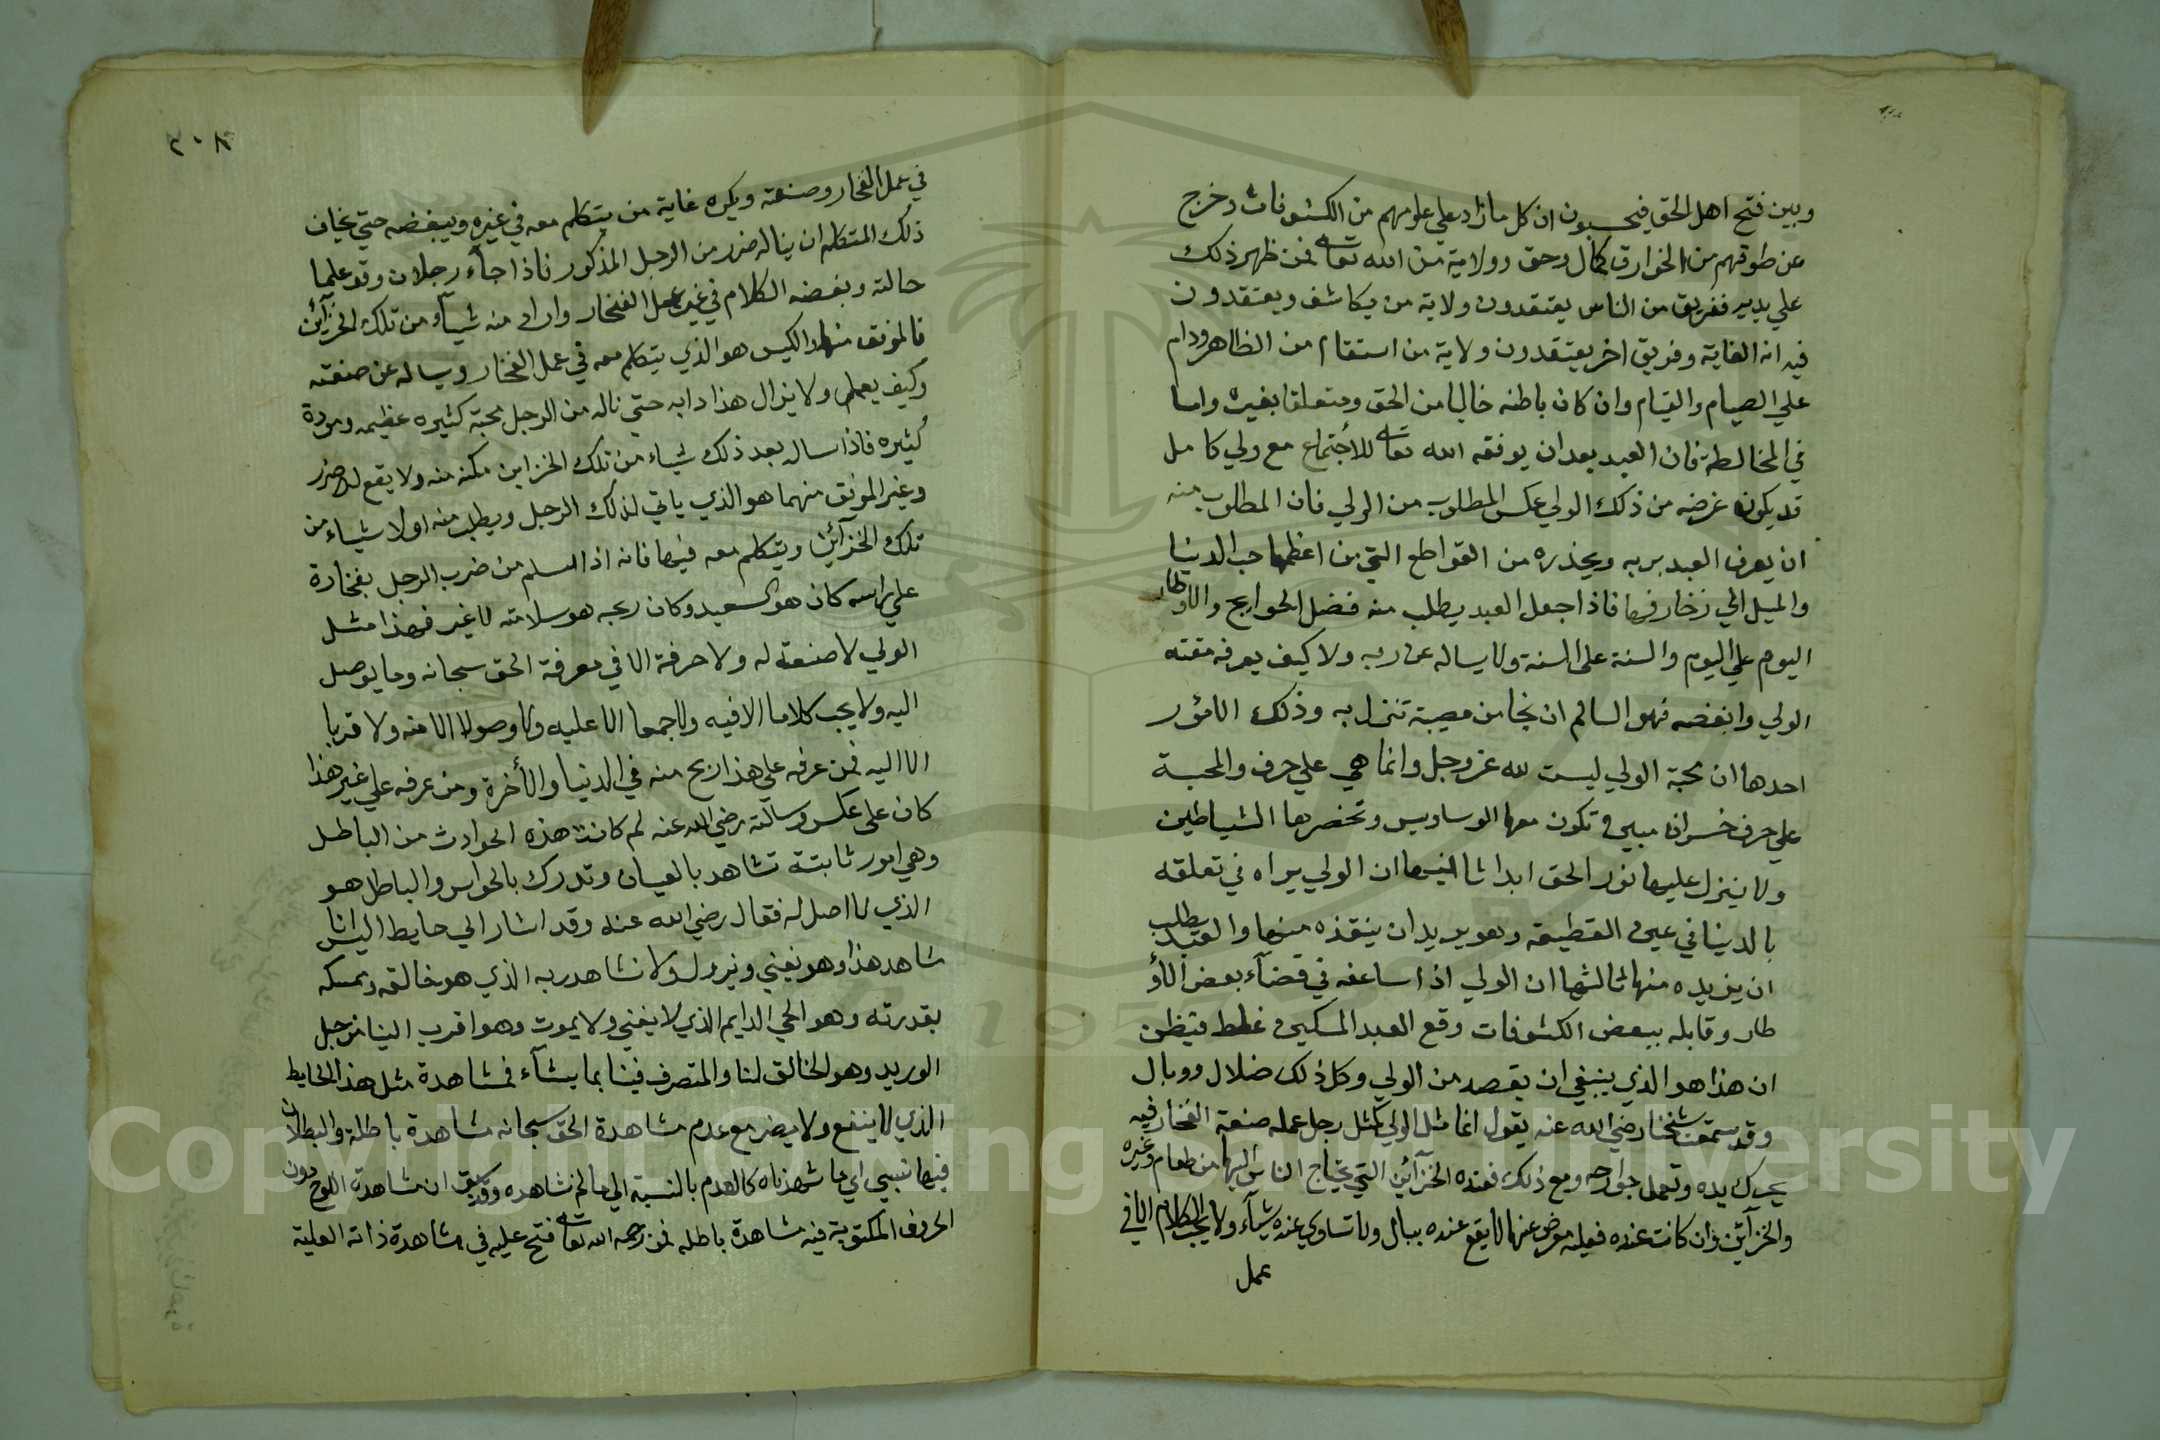 وبين فتح اهل الحق فيحسبون ان كل ما زاد علي علومهم من الكشوفات وخرج
عن طوقهم من الخوارق كمال وحق وولاية من الله تعا فمن ظهر ذلك
علي يديه ففريق من الناس يعتقدون ولاية من يكاشف ويعتقدون
فيه انه الغاية وفريق اخر يعتقدون ولاية من استقام من الظاهر ودام
علي الصيام والقيام وان كان باطنه خاليا من الحق ومتعلقا بغيره واما
في المخالطة فان العبد بعد ان يوفقه الله تعا للاجتماع مع ولي كامل
قد يكون غرضه من ذلك الولي عكس المطلوب من الولي فان المطلوب منه
ان يعرف العبد بربه ويحذره من القواطع التي من اعظمها حب الدنيا
والميل الي زخارفها فاذا جعل العبد يطلب منه فضل الحوايج والاوطار
اليوم علي اليوم والسنة علي السنة ولا يساله عن ربه ولا كيف يعرفه مقته
الولي وابغضه فهو السالم ان نجا من مصيبة تنزل به وذلك لامور
احدها ان محبة الولي ليست لله عز وجل وانما هي علي حرف والمحبة
علي حرف خسران مبين تكون معها الوساوس وتحضرها الشياطين
ولا ينزل عليها نور الحق ابدا ثانيها ان الولي يراه في تعلقه
بالدنيا في عين القطيعة وهو يريد ان ينقذه منها والعبد يطلب
ان يزيده منها ثالثها ان الولي اذا ساعفه في قضآء بعض الاو
طار وقابله ببعض الكشوفات وقع العبد المسكين غلط فيظن
ان هذا هو الذي ينبغي ان يقصد من الولي وكل ذلك ضلال ووبال
وقد سمعت شيخنا رضي الله عنه يقول انما مثل الولي كمثل رجل عمله صنعة الفخار فيه
يحرك يده وتعمل جوارحه ومع ذلك فعنده الخزآئن التي يحتاج الناس اليها من طعام وغيره
والخزآئن وان كانت عنده فعليه معرض عنها لا يقع عنده ببال ولا تساوي عنده شيآء ولا يحب الكلام الا في
عمل
٢٠٨
في عمل الفخار وصنعته ويكره غاية من يتكلم معه في غيره ويبغضه حتي يخاف
ذلك المتكلم ان يناله ضرر من الرجل المذكور فاذا جآء رجلان وقد علما
حالته وبغضه الكلام في غير عمل الفخار وارادا منه شيآء من تلك الخزآئن
فالموفق منهما والكيس هو الذي يتكلم معه في عمل الفخار ويساله عن صنعته
وكيف يعمل ولا يزال هذا دابه حتي ناله من الرجل محبة كثيره عظيمه ومودة
كثيره فاذا ساله بعد ذلك شياء من تلك الخزاين مكنه منه ولا يقع له ضرر
وغير الموفق منهما هو الذي ياتي لذلك الرجل ويطلب منه اولا شياء من
تلك الخزآئن ويتكلم معه فيها فانه اذا سلم من ضرب الرجل بفخارة
علي راسه كان هو السعيد وكان ربحه هو سلامته لا غير فهذا مثل
الولي لا صنعة له ولا حرفة الا في معرفة الحق سبحانه وما يوصل
اليه ولا يحب كلاما الا فيه ولا جمعا الا عليه ولا وصولا الا منه ولا قربا
الا اليه فمن عرفه علي هذا ربح منه في الدنيا والأخرة ومن عرفه علي غير هذا
كان علي عكس وسالته رضي الله عنه لم كانت هذه الحوادث من الباطل
وهي امور ثابتة تشاهد بالعيان وتدرك بالحواس والباطل هو
الذي لا اصل له فقال رضي الله عنه وقد اشار الي حايط اليس انا
شاهد هذا وهو يفني ويزول ولا نشاهد ربه الذي هو خالقه وممسكه
بقدرته وهو الحي الدايم الذي لا يفني ولا يموت وهو اقرب الينا من حبل
الوريد وهو الخالق لنا والمتصرف فينا بما يشآء فمشاهدة مثل هذا الحايط
الذي لا ينفع ولا يضر مع عدم مشاهدة الحق سبحانه مشاهدة باطلة والبطلان
فيها نسبي اي ما شهدناه كالعدم بالنسبة الي ما لم نشاهده وقد سبق ان مشاهدة اللوح دون
الحروف المكتوبة فيه مشاهدة باطله فمن رحمه الله تعا فتح عليه في مشاهدة ذاته العلية
Copyright © King Saud University
1957